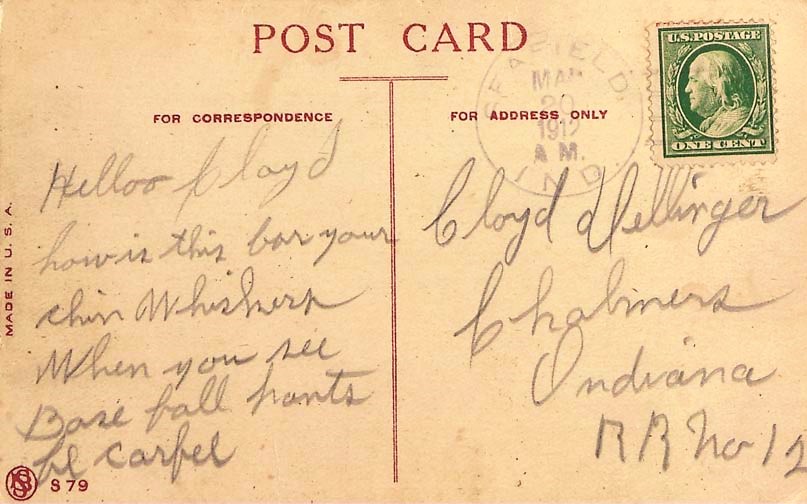 POST CARD
FOR CORRESPONDENCE
FOR ADDRESS ONLY
SEAFIELD,
MAR
20
1912
A M.
IND.
U.S. POSTAGE
ONE CENT
MADE IN U.S.A.
Helloo Cloyd
how is this for your
chin Whiskers
When you see
Base ball pants
be carfel
Cloyd Dellinger
Chalmers
Indiana
R R No 12
S 79